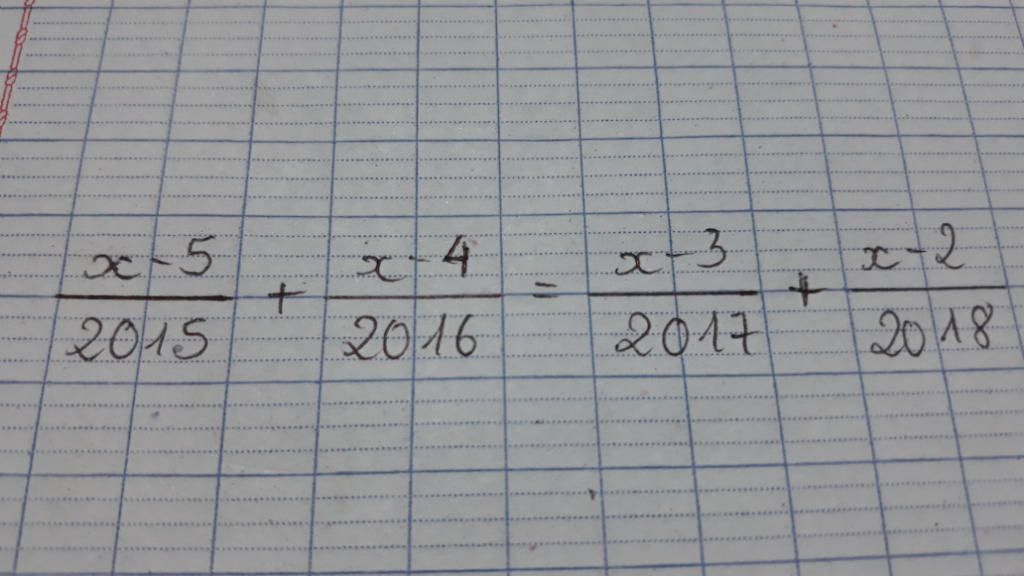 x-5/2015 + x-4/2016 = x-3/2017 + x-2/2018